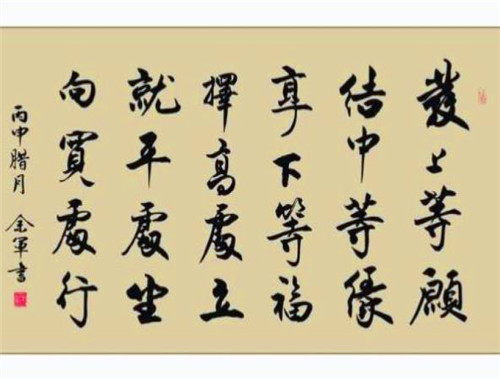 發上等願
結中等緣
享下等福
擇高處立
就平處坐
向寬處行
丙申腊月 余軍書